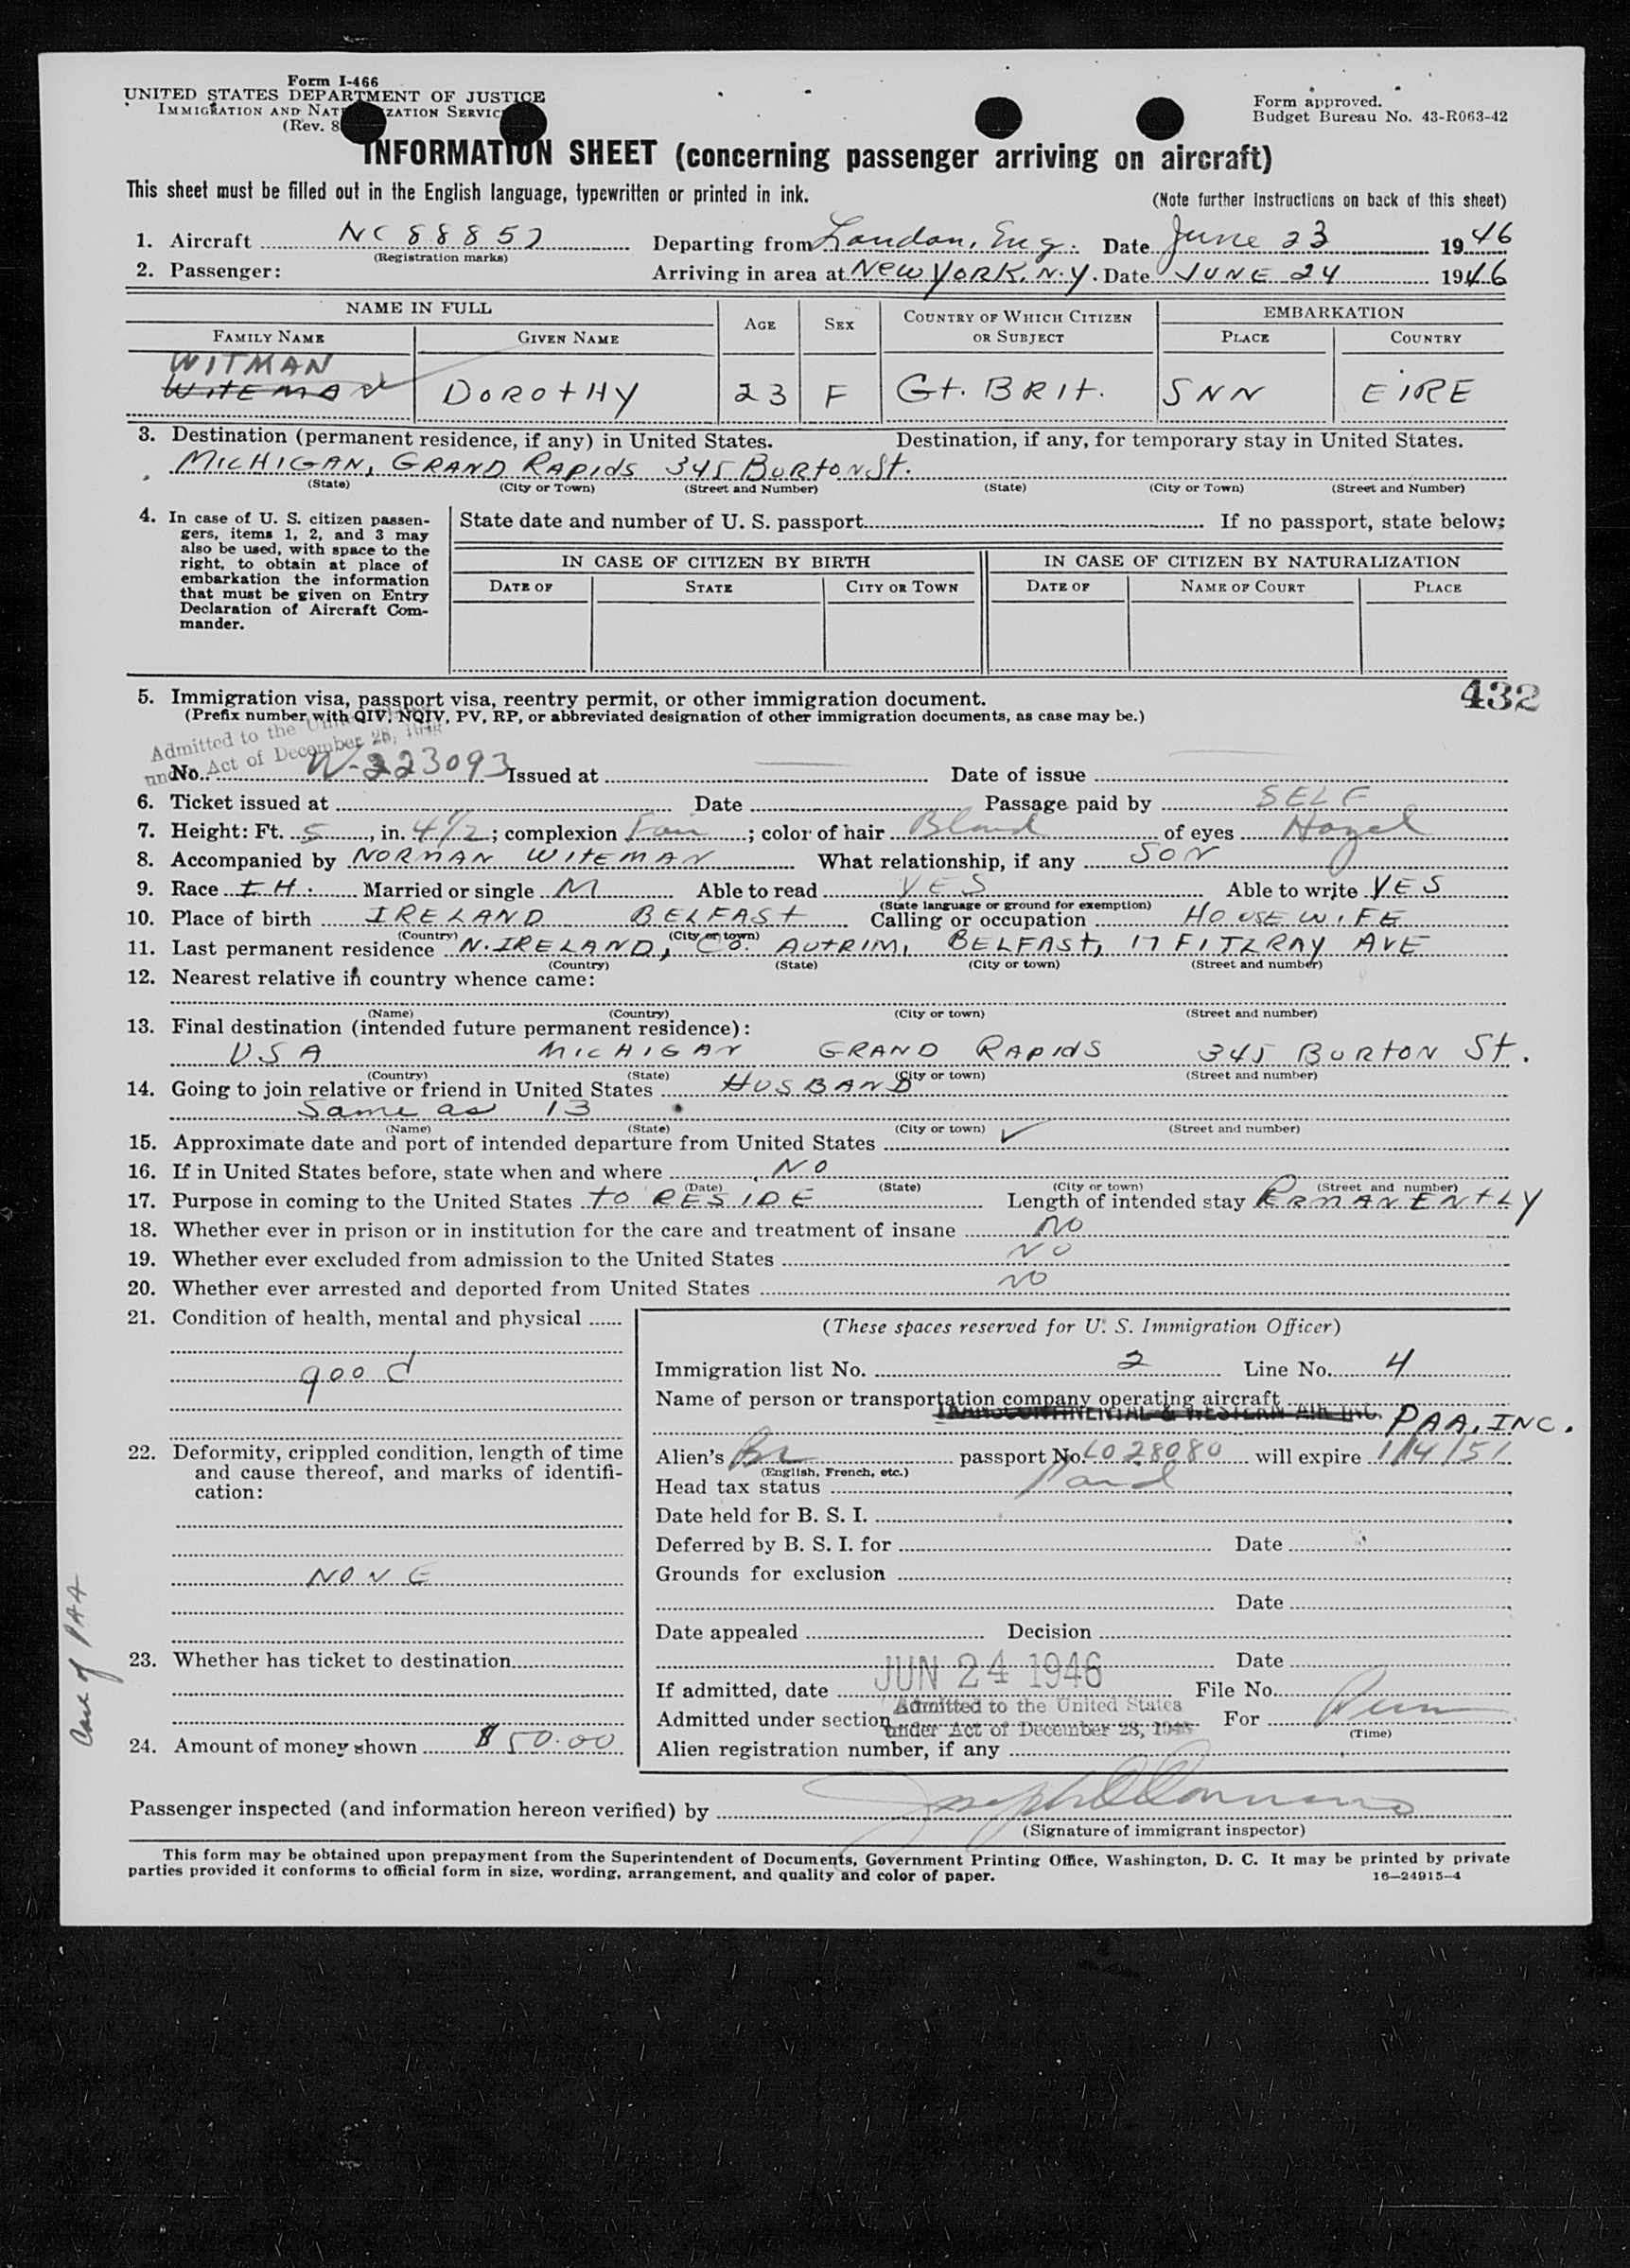 Form I-466
UNITED STATES DEPARTMENT OF JUSTICE
IMMIGRATION AND NATURALIZATION SERVICE
(Rev. 8
Form approved.
Budget Bureau No. 43-R063-42
INFORMATION SHEET (concerning passenger arriving on aircraft)
This sheet must be filled out in the English language, typewritten or printed in ink.
(Note further instructions on back of this sheet)
1. Aircraft NC 88852 Departing from London, Eng. Date June 23 1946
(Registration marks)
2. Passenger: Arriving in area at NEW YORK, N.Y. Date JUNE 24 1946
NAME IN FULL AGE SEX COUNTRY OF WHICH CITIZEN OR SUBJECT EMBARKATION
FAMILY NAME GIVEN NAME PLACE COUNTRY
WITMAN
WITEMAN DOROTHY 23 F Gt. BRIT. SNN EIRE
3. Destination (permanent residence, if any) in United States. Destination, if any, for temporary stay in United States.
MICHIGAN, GRAND RAPIDS 345 BURTON St.
(State) (City or Town) (Street and Number) (State) (City or Town) (Street and Number)
4. In case of U. S. citizen passengers, items 1, 2, and 3 may also be used, with space to the right, to obtain at place of embarkation the information that must be given on Entry Declaration of Aircraft Commander.
State date and number of U. S. passport If no passport, state below:
IN CASE OF CITIZEN BY BIRTH IN CASE OF CITIZEN BY NATURALIZATION
DATE OF STATE CITY OR TOWN DATE OF NAME OF COURT PLACE
432
5. Immigration visa, passport visa, reentry permit, or other immigration document.
(Prefix number with QIV, NQIV, PV, RP, or abbreviated designation of other immigration documents, as case may be.)
Admitted to the
under Act of December 28, 1945
No. V-223093 Issued at Date of issue
6. Ticket issued at Date Passage paid by SELF
7. Height: Ft. 5, in. 4 1/2; complexion Fair; color of hair Blond of eyes Hazel
8. Accompanied by NORMAN WITEMAN What relationship, if any SON
9. Race Married or single M Able to read YES Able to write YES
(State language or ground for exemption)
10. Place of birth IRELAND BELFAST Calling or occupation HOUSEWIFE
(Country) (City or town)
11. Last permanent residence N. IRELAND, CO. AUTRIM, BELFAST, 17 FITZRAY AVE
(Country) (State) (City or town) (Street and number)
12. Nearest relative in country whence came:
(Name) (Country) (City or town) (Street and number)
13. Final destination (intended future permanent residence):
USA MICHIGAN GRAND RAPIDS 345 BURTON St.
(Country) (State) (City or town) (Street and number)
14. Going to join relative or friend in United States HUSBAND
Same as 13
(Name) (State) (City or town) (Street and number)
15. Approximate date and port of intended departure from United States ✓
16. If in United States before, state when and where NO
(Date) (State) (City or town) (Street and number)
17. Purpose in coming to the United States TO RESIDE Length of intended stay PERMANENTLY
18. Whether ever in prison or in institution for the care and treatment of insane NO
19. Whether ever excluded from admission to the United States NO
20. Whether ever arrested and deported from United States NO
21. Condition of health, mental and physical
good
22. Deformity, crippled condition, length of time and cause thereof, and marks of identification:
NONE
23. Whether has ticket to destination
24. Amount of money shown $50.00
Care of PAA
(These spaces reserved for U. S. Immigration Officer)
Immigration list No. 2 Line No. 4
Name of person or transportation company operating aircraft
TRANSCONTINENTAL & WESTERN AIR INC. PAA, INC.
Alien's Br passport No. LO 28080 will expire 1/14/51
(English, French, etc.)
Head tax status Paid
Date held for B. S. I.
Deferred by B. S. I. for Date
Grounds for exclusion
Date
Date appealed Decision
Date
If admitted, date JUN 24 1946 File No.
Admitted to the United States
Admitted under section under Act of December 28, 1945 For Perm
(Time)
Alien registration number, if any
Passenger inspected (and information hereon verified) by
(Signature of immigrant inspector)
This form may be obtained upon prepayment from the Superintendent of Documents, Government Printing Office, Washington, D. C. It may be printed by private
parties provided it conforms to official form in size, wording, arrangement, and quality and color of paper. 16—24915-4